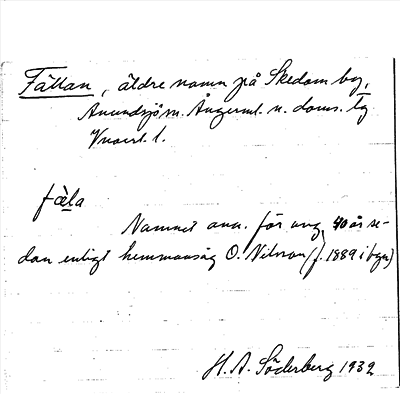 Fällan, äldre namn på Skedom by,
Anundsjö sn. Ångerml. n. doms. lg
Vnorrl. l.
fä̀la
Namnet anv. för ung. 40 år se-
dan enligt hemmansäg O. Nilsson (f. 1889 i byn)
H. A. Söderberg 1932